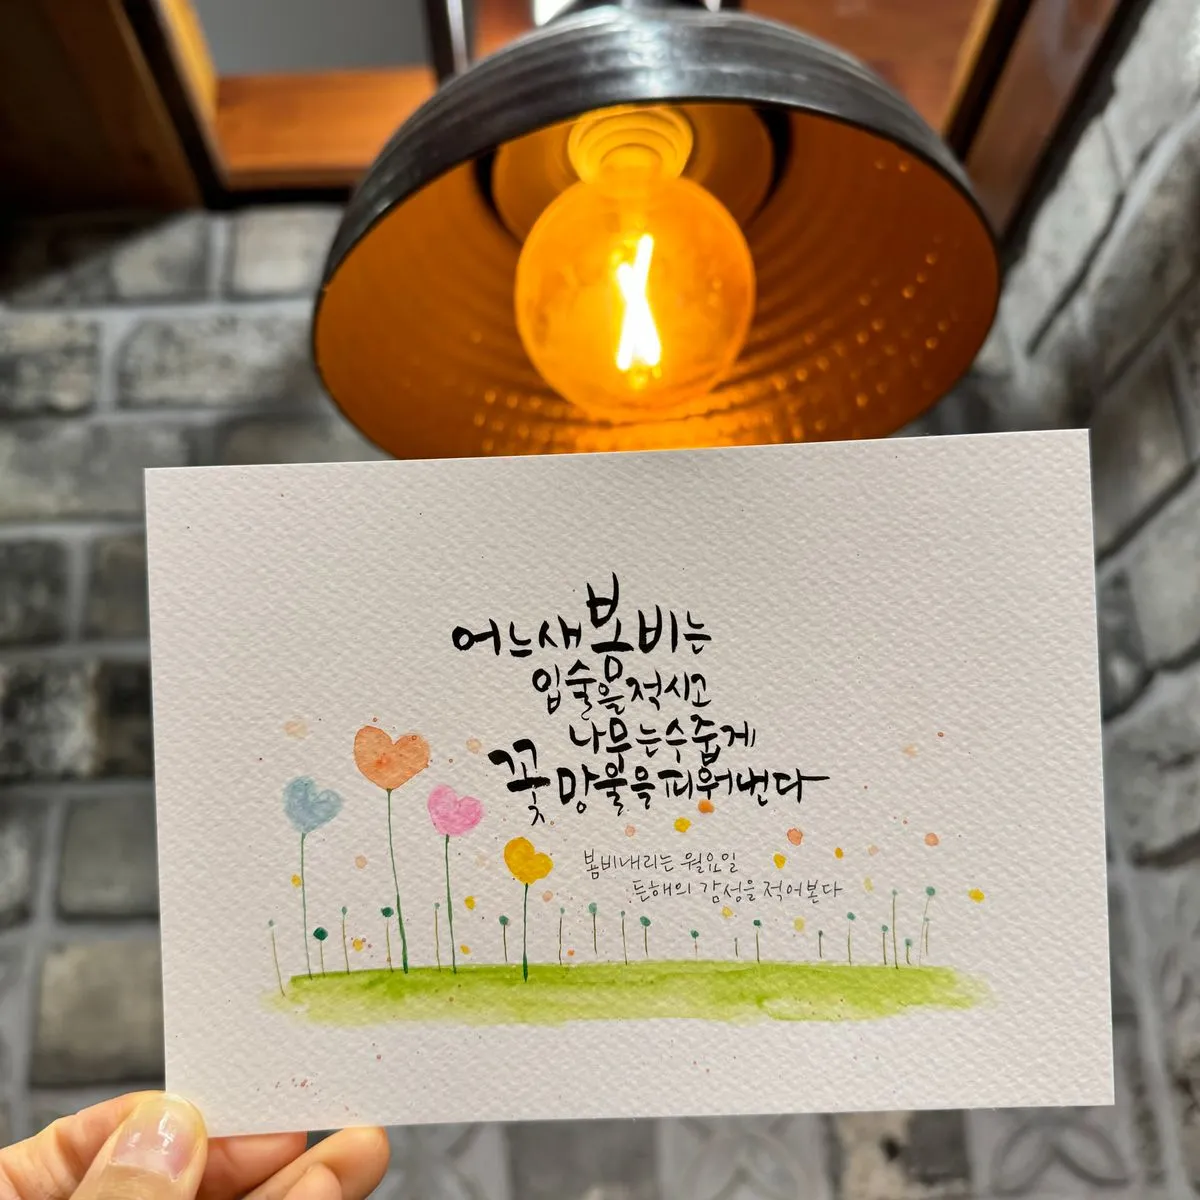 어느새 봄비는
입술을 적시고
나무는 수줍게
꽃망울을 피워낸다
봄비내리는 월요일
든해의 감성을 적어본다